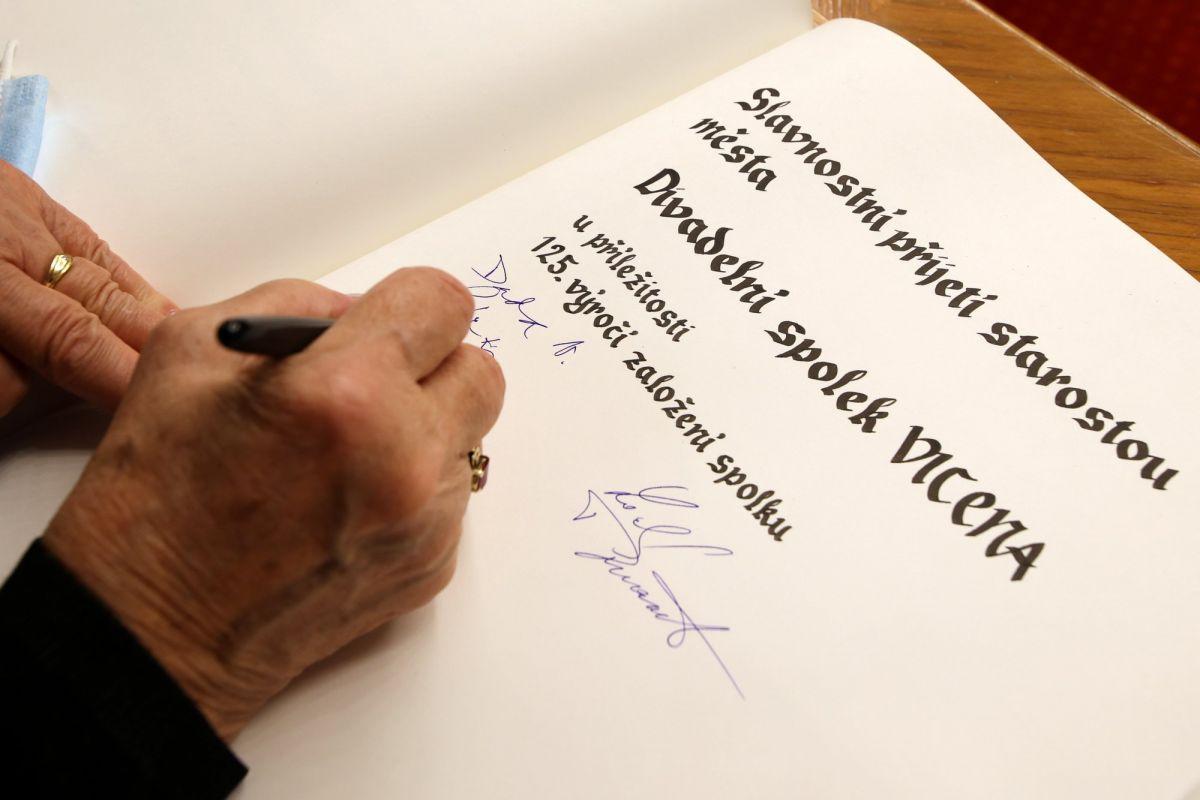 Slavnostní přijetí starostou
města
Divadelní spolek VICENA
u příležitosti
125. výročí založení spolku